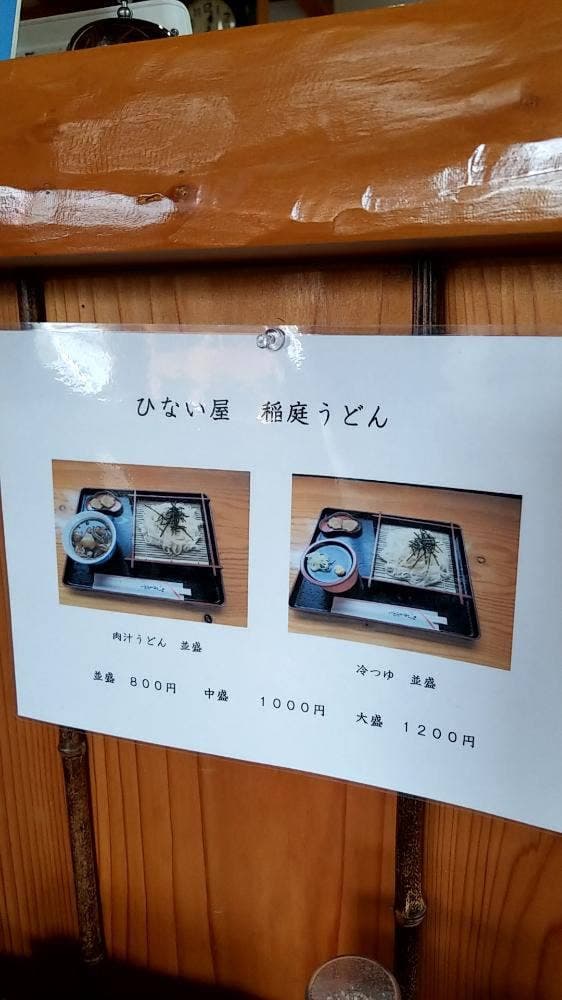 ひない屋　稲庭うどん
肉汁うどん　並盛
冷つゆ　並盛
並盛　８００円　中盛　１０００円　大盛　１２００円